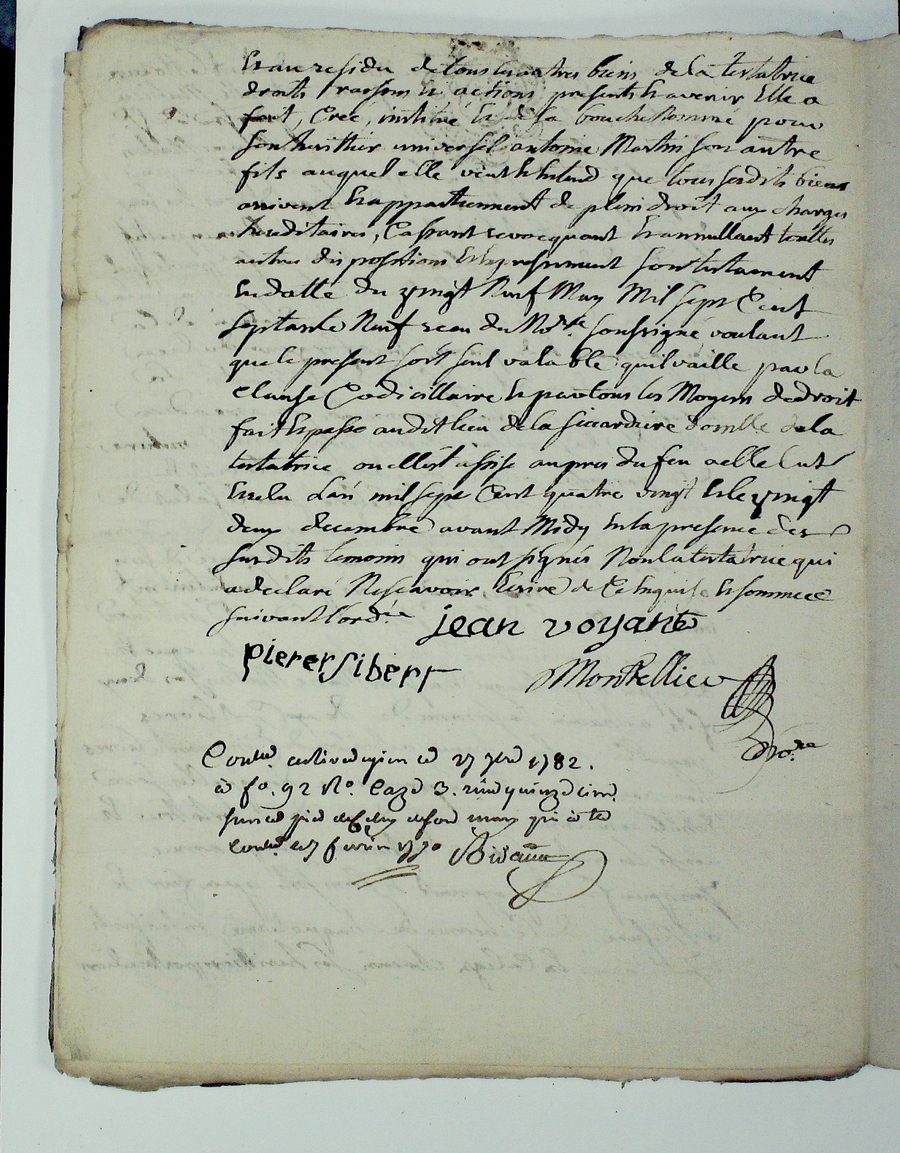 Et au residu de tous les autres biens de la testatrice
droits raisons et actions presents et avenir Elle a
fait, Créé, institué et de sa bouche Nommé pour
son heritier universel antoine Martin son autre
fils auquel elle veut et entend que tous ses dits biens
arrivent et appartiennent de plein droit aux charges
hereditaires, Cassant revoquant et annullant touttes
autres dispositions et expressement son testament
en datte du vingt Neuf May Mil sept Cent
septante Neuf receu du No.re soussigné voulant
que le present soit seul valable qu'il vaille par la
Clause Codicillaire et par tous les Moyens de droit
fait et passé audit lieu de la sicardiere domille de la
testatrice ou elle est assise aupres du feu a elle lut
et relu L'an mil sept Cent quatre vingt et le vingt
deux decembre avant Midy en la presence des
susdits temoins qui ont signés Non la testatrice qui
a declaré Ne scavoir Ecrire de Ce Enquise et sommée
suivant l'ord.ce
jean voyant
pierer sibert
Montellier
No.re
Contr. 27 1782.
f.o 92 N.o Caze 3.